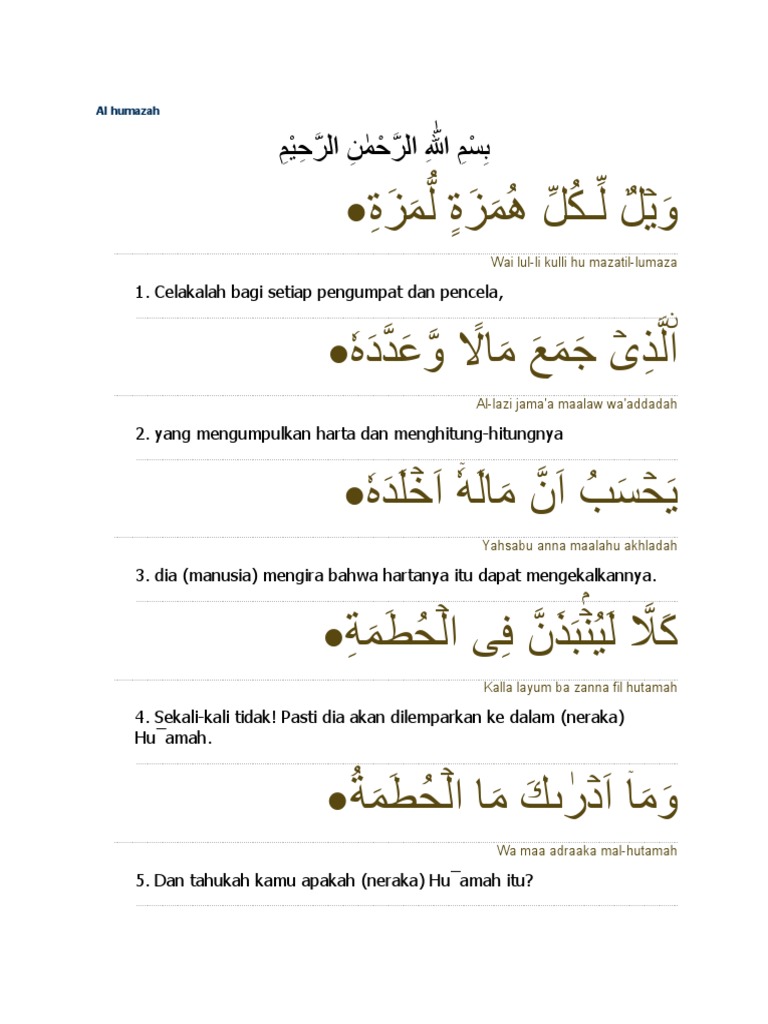 Al humazah
بِسْمِ اللّٰهِ الرَّحْمٰنِ الرَّحِيْمِ
وَيْلٌ لِّـكُلِّ هُمَزَةٍ لُّمَزَةِ●
Wai lul-li kulli hu mazatil-lumaza
1. Celakalah bagi setiap pengumpat dan pencela,
اۨلَّذِىْ جَمَعَ مَالًا وَّعَدَّدَهٗ●
Al-lazi jama'a maalaw wa'addadah
2. yang mengumpulkan harta dan menghitung-hitungnya
يَحْسَبُ اَنَّ مَالَهٗۤ اَخْلَدَهٗ●
Yahsabu anna maalahu akhladah
3. dia (manusia) mengira bahwa hartanya itu dapat mengekalkannya.
كَلَّا لَيُنْۢبَذَنَّ فِى الْحُطَمَةِ●
Kalla layum ba zanna fil hutamah
4. Sekali-kali tidak! Pasti dia akan dilemparkan ke dalam (neraka)
Hu¯amah.
وَمَاۤ اَدْرٰٮكَ مَا الْحُطَمَةُ●
Wa maa adraaka mal-hutamah
5. Dan tahukah kamu apakah (neraka) Hu¯amah itu?